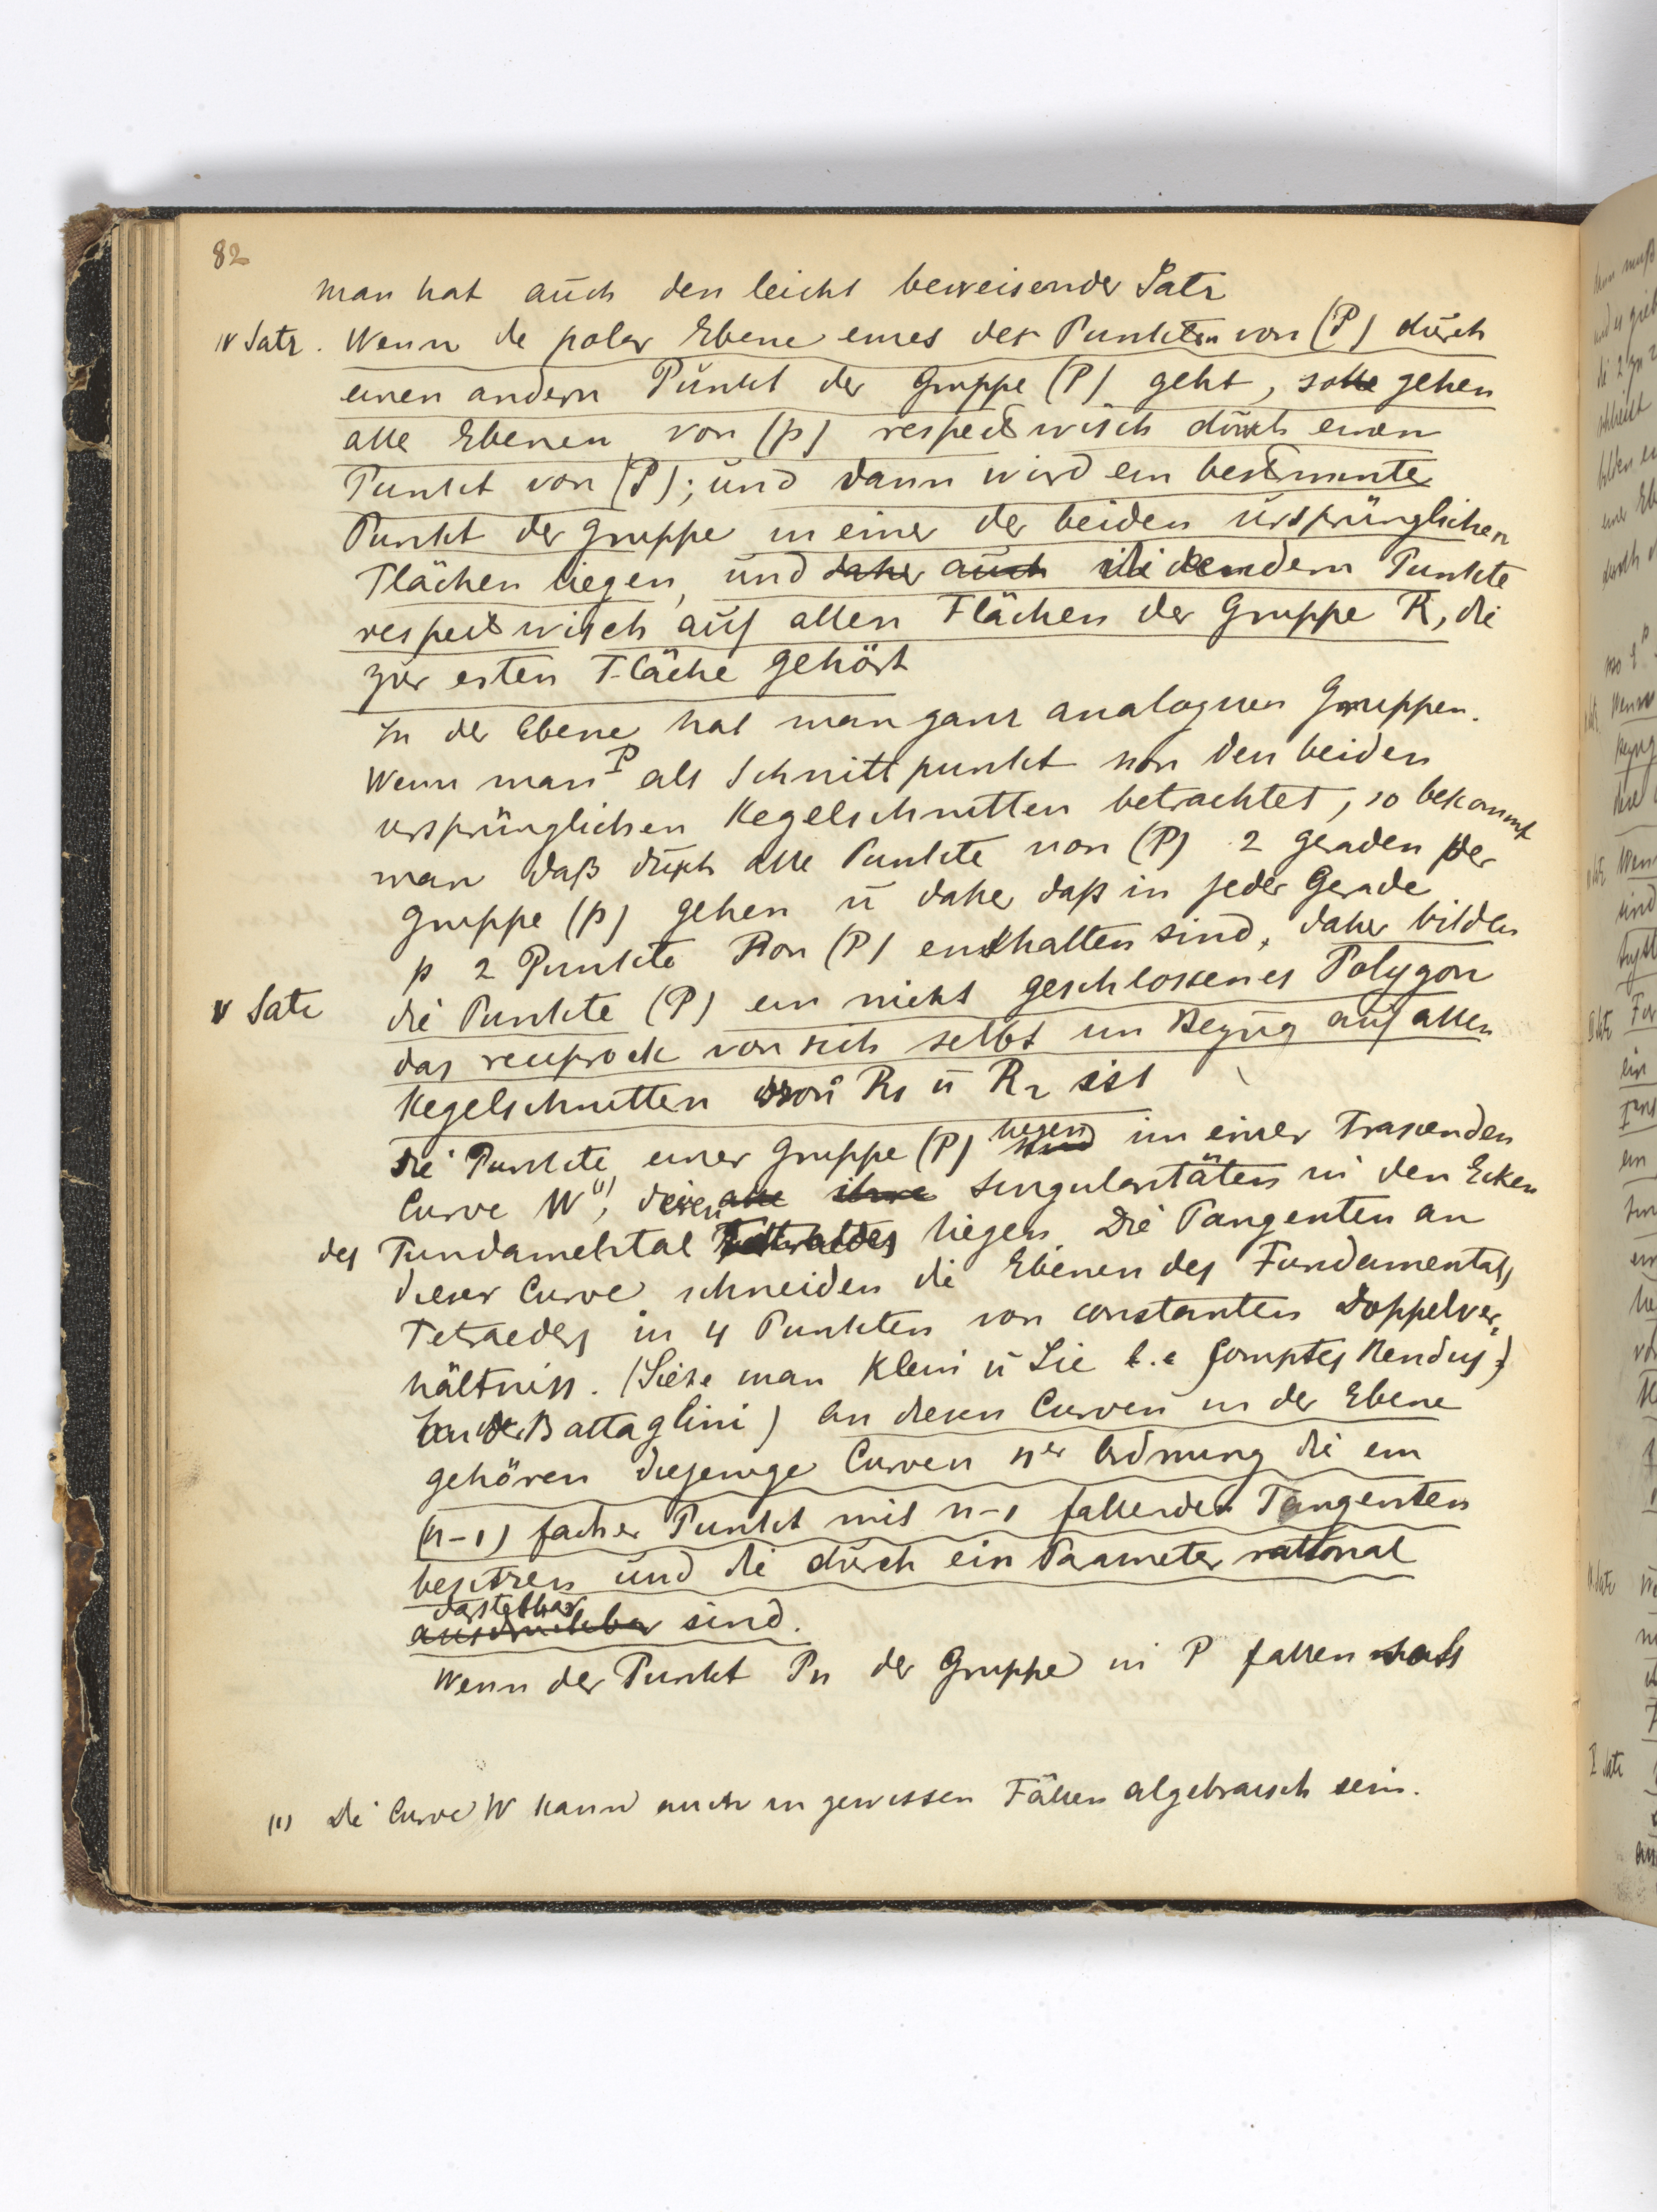 82
Man hat auch den leicht beweisender Satz
IV Satz. Wenn de polar Ebene eines der Punkten von (P) durch
einen andern Punkt der Gruppe (P) geht, so gehen
alle Ebenen von (p) respectwisch durch einen
Punkt von (P); und dann wird ein bestimmter
Punkt der Gruppe in einer der beiden ursprünglichen
Flächen liegen, und daher auch die andern Punkte
respectwisch auf allen Flächen der Gruppe R, die
zur ersten Fläche gehört
In der Ebene hat man ganz analoguen Gruppen.
Wenn man P als Schnittpunkt von den beiden
ursprünglichen Kegelschnitten betrachtet, so bekommt
man daß durch alle Punkte von (P) 2 geraden der
Gruppe (p) gehen u daher daß in jeder Gerade
p 2 Punkte von (P) enthalten sind, daher bilden
V Satz die Punkte (P) ein nicht geschlossenes Polygon
das reciprock von sich selbst im Bezug auf allen
Kegelschnitten von R1 u R2 ist
Die Punkte einer Gruppe (P) liegen im einer Trasenden
Curve W(1), deren alle ihre Singularitäten in den Ecken
des Fundamental Tetraedes liegen. Die Tangenten an
dieser Curve schneiden die Ebenen des Fundamentals
Tetraeders in 4 Punkten von constanten Doppelver-
hältniss. (Siehe man Klein u Lie Comptes Rendus
Battaglini) An diesen Curven in der Ebene
gehören diejenige Curven ner Ordnung die ein
(n-1) facher Punkt mit n-1 fallender Tangenten
besitzen und die durch ein Parameter rational
darstellbar
ausdruckbar sind.
Wenn der Punkt Pn der Gruppe in P fallen
(1) Die Curve W kann auch in gewissen Fällen algebraisch sein.